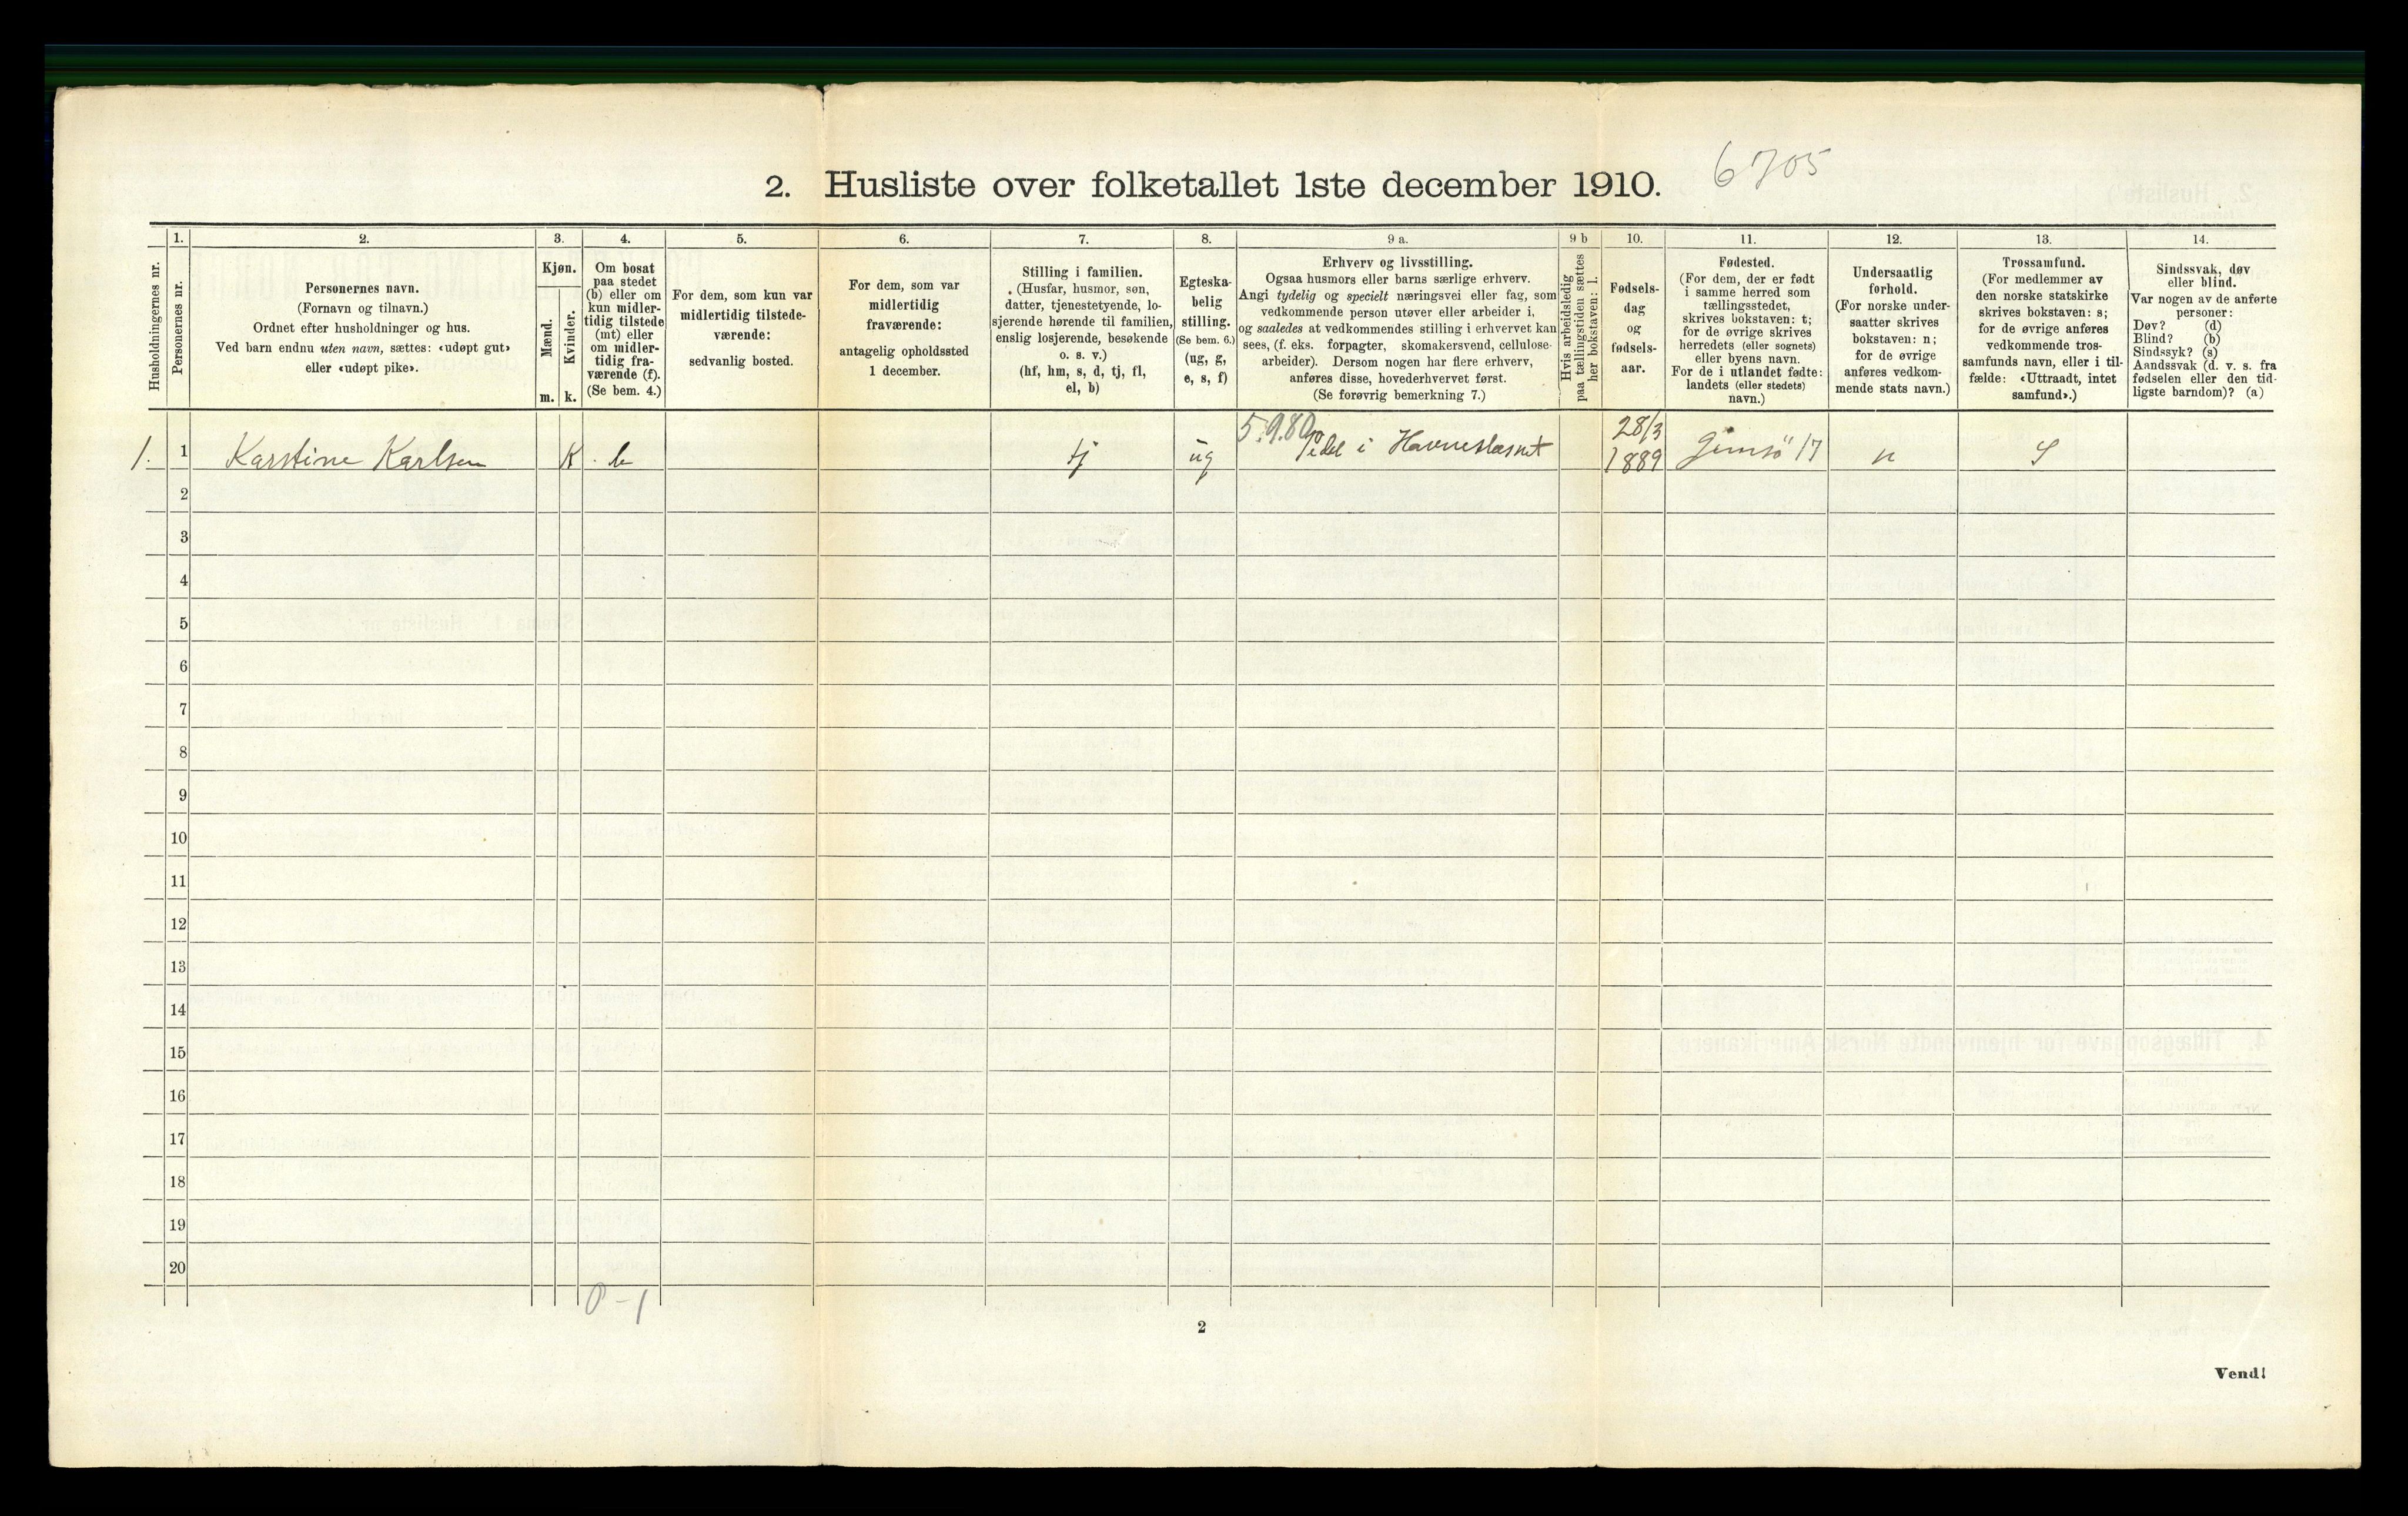 2. Husliste over folketallet 1ste december 1910. 6705
Husholdningernes nr.
1. Personernes nr.
2.
Personernes navn.
(Fornavn og tilnavn.)
Ordnet efter husholdninger og hus.
Ved barn endnu uten navn, sættes: «udøpt gut»
eller «udøpt pike».
3.
Kjøn.
Mænd. Kvinder.
m. k.
4.
Om bosat
paa stedet
(b) eller om
kun midler-
tidig tilstede
(mt) eller
om midler-
tidig fra-
værende (f).
(Se bem. 4.)
5.
For dem, som kun var
midlertidig tilstede-
værende:
sedvanlig bosted.
6.
For dem, som var
midlertidig
fraværende:
antagelig opholdssted
1 december.
7.
Stilling i familien.
(Husfar, husmor, søn,
datter, tjenestetyende, lo-
sjerende hørende til familien,
enslig losjerende, besøkende
o. s. v.)
(hf, hm, s, d, tj, fl,
el, b)
8.
Egteska-
belig
stilling.
(Se bem. 6.)
(ug, g,
e, s, f)
9 a.
Erhverv og livsstilling.
Ogsaa husmors eller barns særlige erhverv.
Angi tydelig og specielt næringsvei eller fag, som
vedkommende person utøver eller arbeider i,
og saaledes at vedkommendes stilling i erhvervet kan
sees, (f. eks. forpagter, skomakersvend, cellulose-
arbeider). Dersom nogen har flere erhverv,
anføres disse, hovederhvervet først.
(Se forøvrig bemerkning 7.)
9 b
Hvis arbeidsledig
paa tællingstiden sættes
her bokstaven: l.
10.
Fødsels-
dag
og
fødsels-
aar.
11.
Fødested.
(For dem, der er født
i samme herred som
tællingsstedet,
skrives bokstaven: t;
for de øvrige skrives
herredets (eller sognets)
eller byens navn.
For de i utlandet fødte:
landets (eller stedets)
navn.)
12.
Undersaatlig
forhold.
(For norske under-
saatter skrives
bokstaven: n;
for de øvrige
anføres vedkom-
mende stats navn.)
13.
Trossamfund.
(For medlemmer av
den norske statskirke
skrives bokstaven: s;
for de øvrige anføres
vedkommende tros-
samfunds navn, eller i til-
fælde: «Uttraadt, intet
samfund».)
14.
Sindssvak, døv
eller blind.
Var nogen av de anførte
personer:
Døv? (d)
Blind? (b)
Sindssyk? (s)
Aandssvak (d. v. s. fra
fødselen eller den tid-
ligste barndom)? (a)
1. 1 Karstine Karlsen K b tj ug 5.9.80 i 28/3 1889 Gimsö 17 n S
2
3
4
5
6
7
8
9
10
11
12
13
14
15
16
17
18
19
20
0-1
2
Vend!